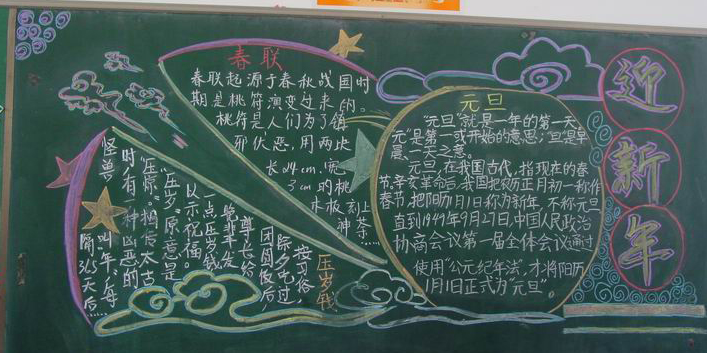 春联
春联起源于春秋战国时
期是桃符演变过来的。
桃符是人们为了镇
邪伏恶,用两块
长24cm,宽
3cm的桃
木板刻上
神荼……
压岁钱
按习俗,
除夕吃过
团圆饭后,
尊长给
晚辈发
一点压岁钱
以示祝福。
"压岁"原意是
"压惊"。相传太古
时,有一种凶恶的
怪兽
叫"年",每
隔365天后……
元旦
"元旦"就是一年的第一天
"元"是第一或开始的意思;"旦"是早
晨、一天之意。
元旦,在我国古代,指现在的春
节,辛亥革命后,我国把农历正月初一称作
春节,把阳历1月1日称为新年,不称元旦
直到1949年9月27日,中国人民政治
协商会议第一届全体会议通过
使用"公元纪年法",才将阳历
1月1日正式为"元旦"。
迎
新
年